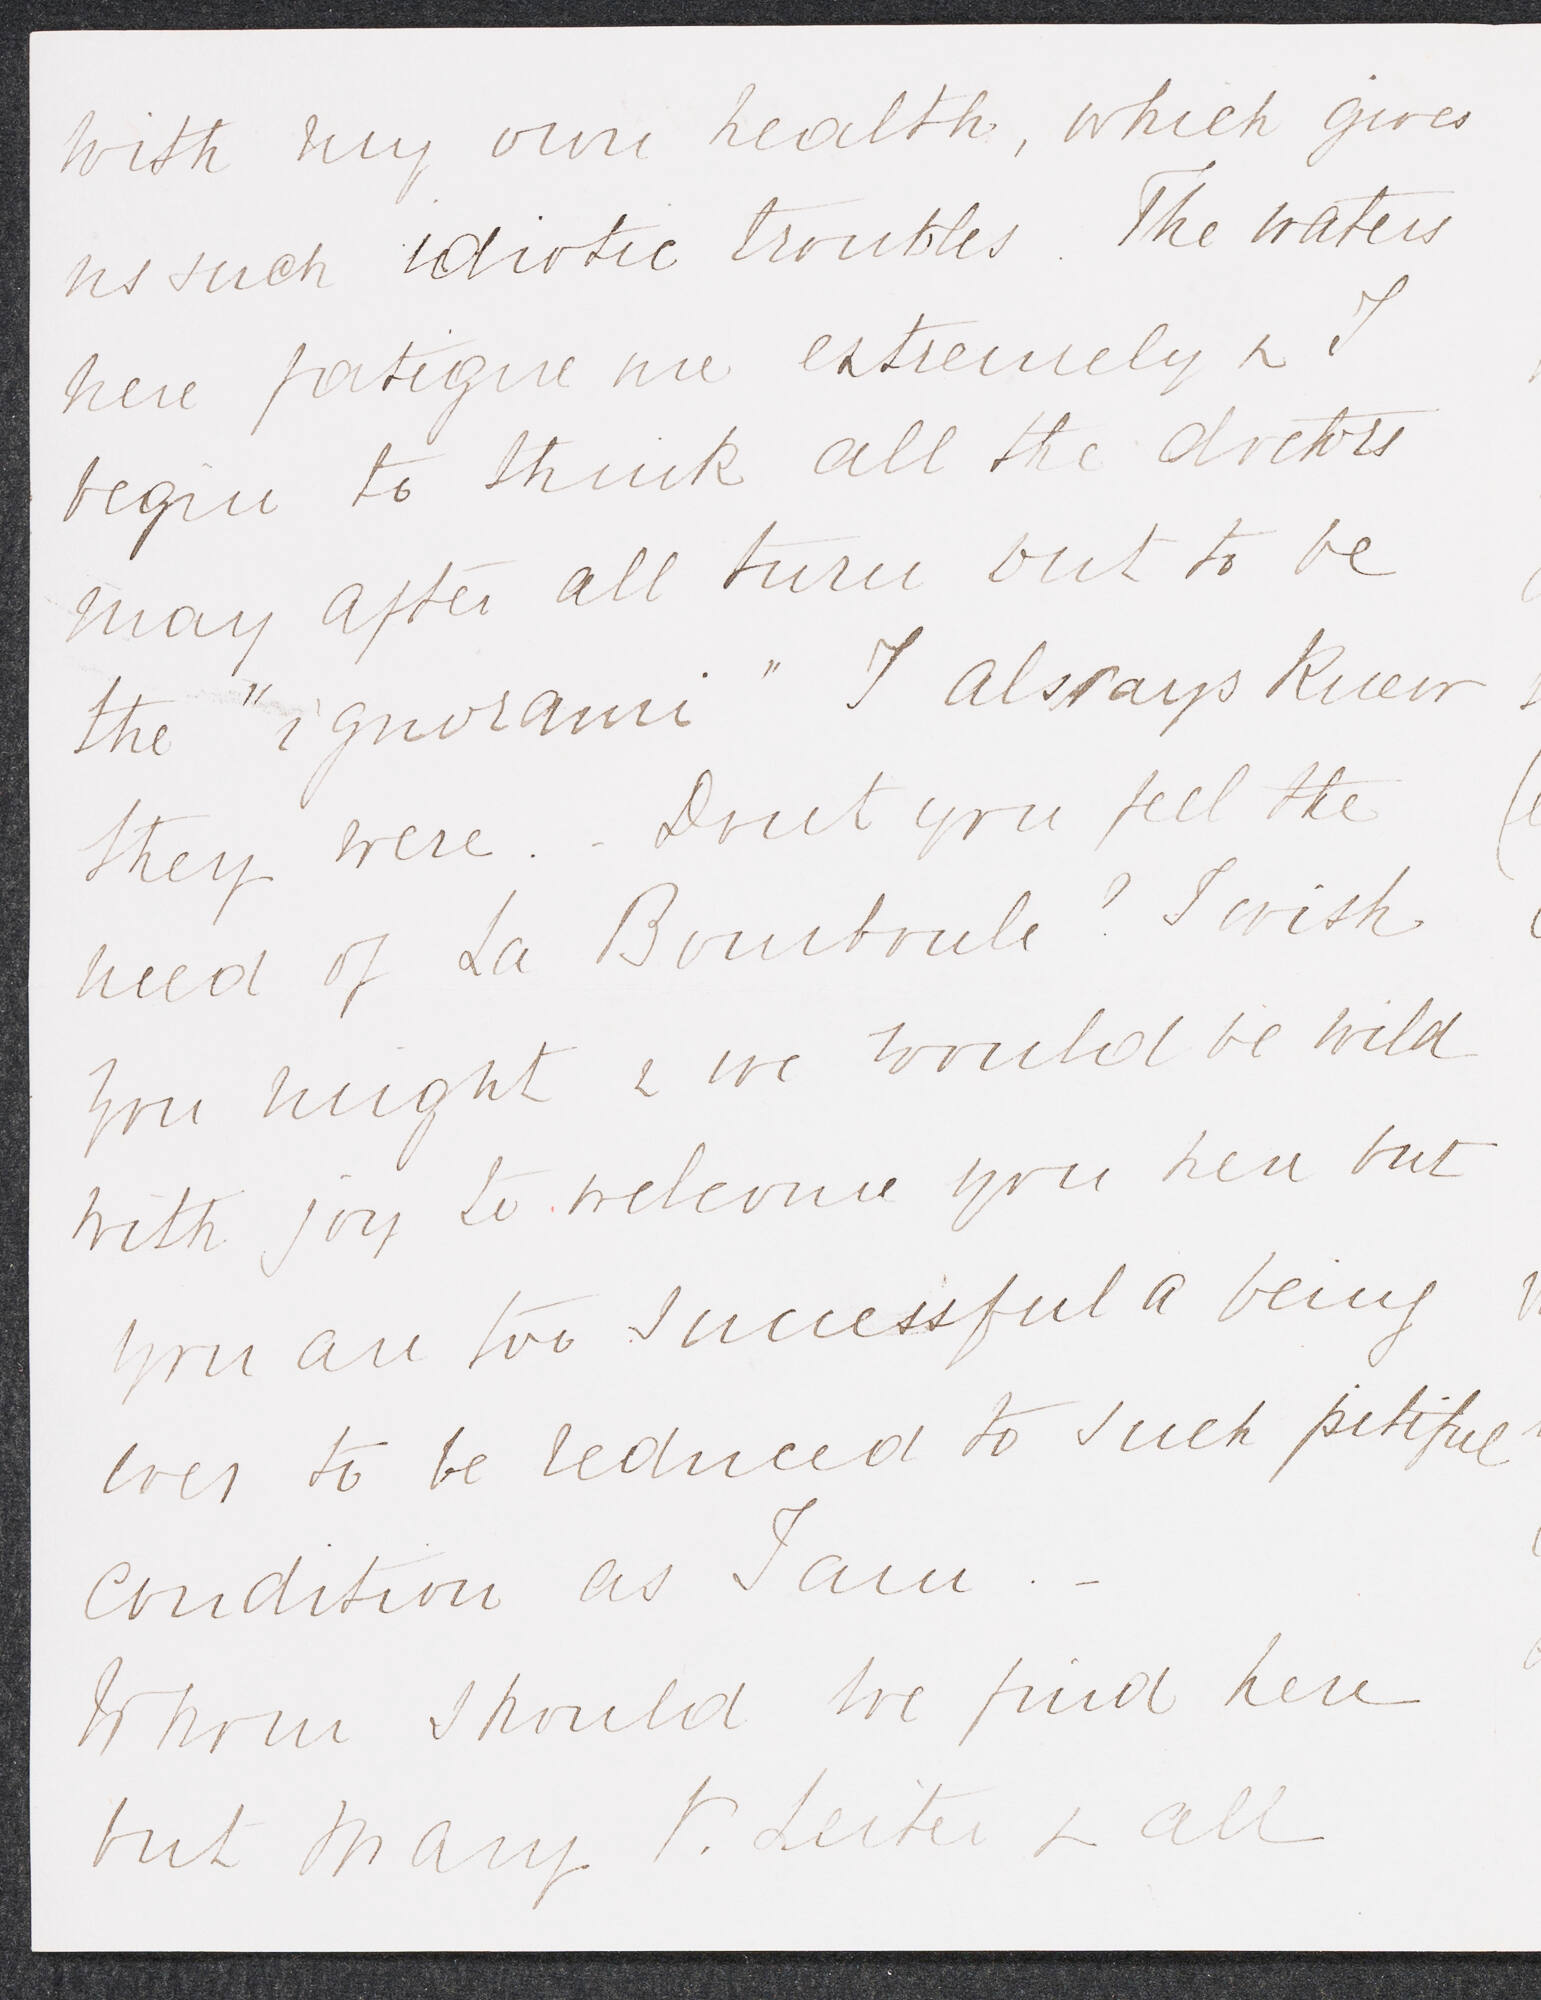 with my own health, which gives
us such idiotic troubles. The waters
here fatigue me extremely & I
begin to think all the doctors
may after all turn out to be
the "ignorami" I always knew
they were. - Dont you feel the
need of La Bourboule? I wish
you might & we would be wild
with joy to welcome you here but
you are too successful a being
ever to be reduced to such pitiful
condition as I am. -
Whom should we find here
but Mary V. Leiter & all